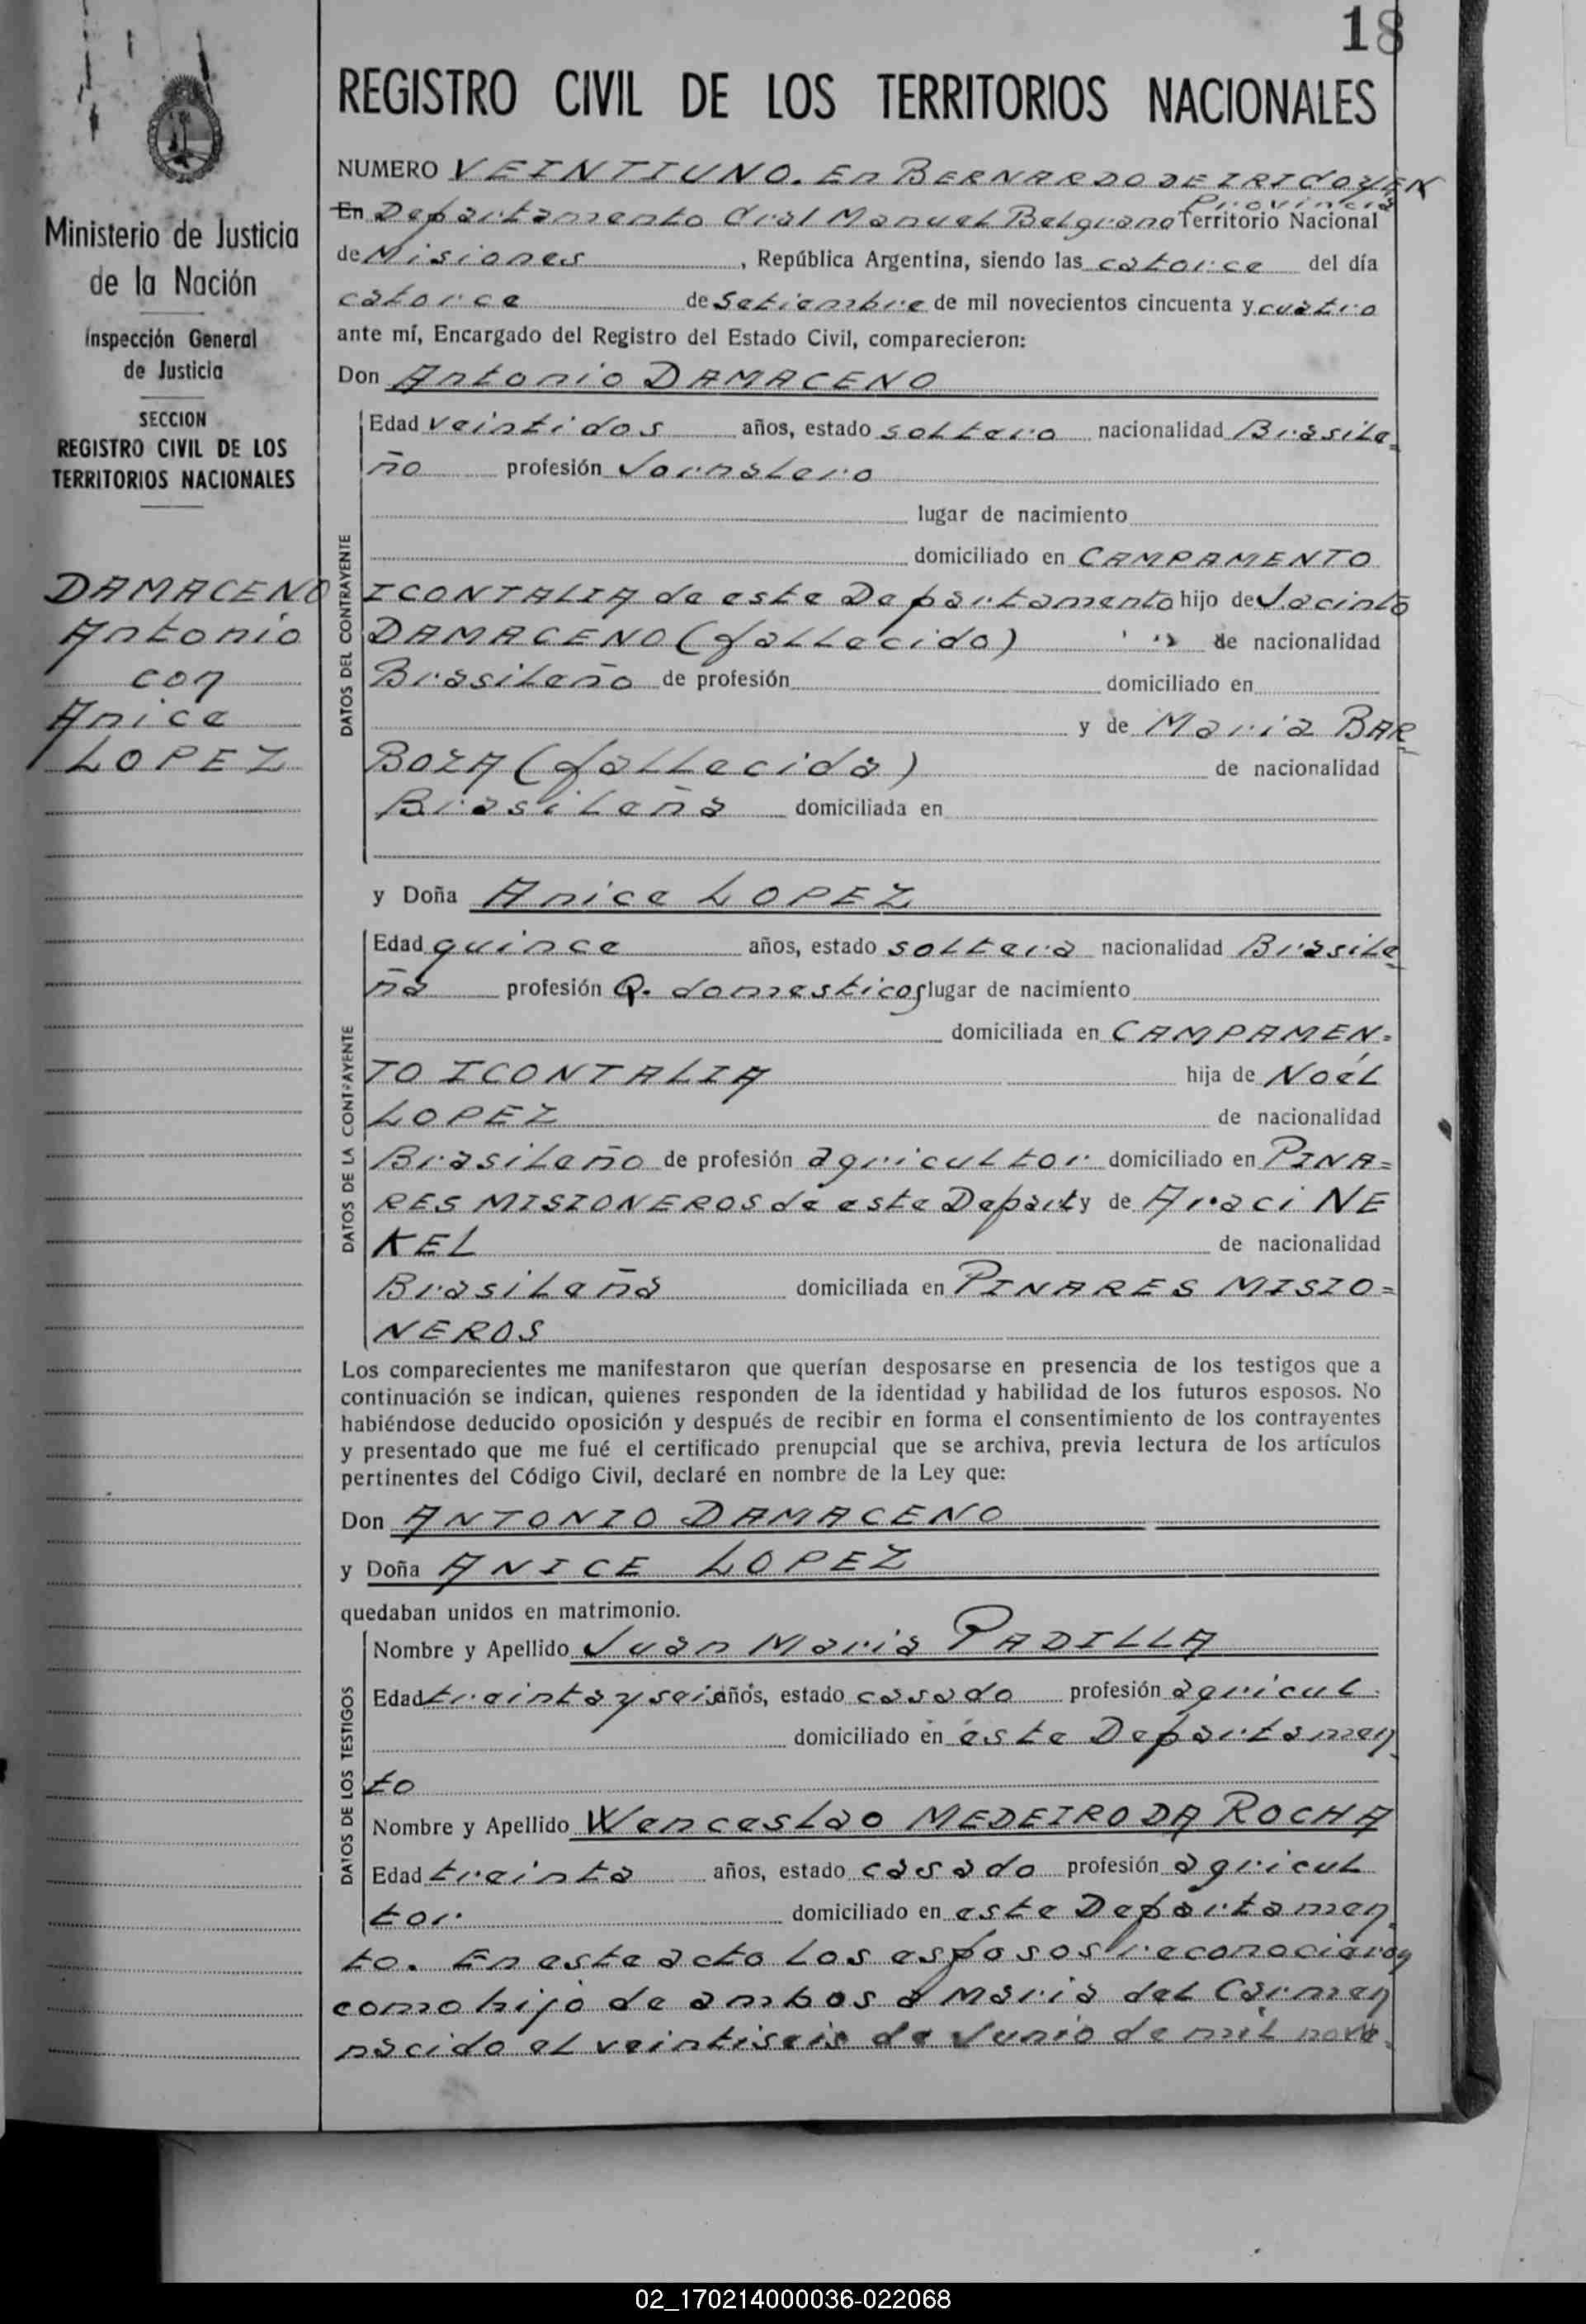 18
REGISTRO CIVIL DE LOS TERRITORIOS NACIONALES
Ministerio de Justicia
de la Nación
Inspección General
de Justicia
SECCION
REGISTRO CIVIL DE LOS
TERRITORIOS NACIONALES
DAMACENO
Antonio
con
Anice
LOPEZ
NUMERO VEINTIUNO. En BERNARDO DE IRIGOYEN
Provincia
En Departamento Gral Manuel Belgrano Territorio Nacional
de Misiones, República Argentina, siendo las catorce del día
catorce de Setiembre de mil novecientos cincuenta y cuatro
ante mí, Encargado del Registro del Estado Civil, comparecieron:
Don Antonio DAMACENO
DATOS DEL CONTRAYENTE
Edad veintidos años, estado soltero nacionalidad Brasile=
ño profesión Jornalero
lugar de nacimiento
domiciliado en CAMPAMENTO
ICONTALIA de este Departamento hijo de Jacinto
DAMACENO (fallecido) de nacionalidad
Brasileño de profesión domiciliado en
y de Maria BAR=
BOZA (fallecida) de nacionalidad
Brasileña domiciliada en
y Doña Anice LOPEZ
DATOS DE LA CONTRAYENTE
Edad quince años, estado soltera nacionalidad Brasile=
ña profesión Q. domesticos lugar de nacimiento
domiciliada en CAMPAMEN=
TO ICONTALIA hija de Noél
LOPEZ de nacionalidad
Brasileño de profesión agricultor domiciliado en PINA=
RES MISIONEROS de este Depart y de Araci NE
KEL de nacionalidad
Brasileña domiciliada en PINARES MISIO=
NEROS
Los comparecientes me manifestaron que querían desposarse en presencia de los testigos que a
continuación se indican, quienes responden de la identidad y habilidad de los futuros esposos. No
habiéndose deducido oposición y después de recibir en forma el consentimiento de los contrayentes
y presentado que me fué el certificado prenupcial que se archiva, previa lectura de los artículos
pertinentes del Código Civil, declaré en nombre de la Ley que:
Don ANTONIO DAMACENO
y Doña ANICE LOPEZ
quedaban unidos en matrimonio.
DATOS DE LOS TESTIGOS
Nombre y Apellido Juan Maria PADILLA
Edad treinta y seis años, estado casado profesión agricul.
domiciliado en este Departamen
to
Nombre y Apellido Wenceslao MEDEIRO DA ROCHA
Edad treinta años, estado casado profesión agricul
tor domiciliado en este Departamen
to. En este acto los esposos reconocieron
como hijo de ambos a Maria del Carmen
nacido el veintiseis de Junio de mil nove=
02_170214000036-022068